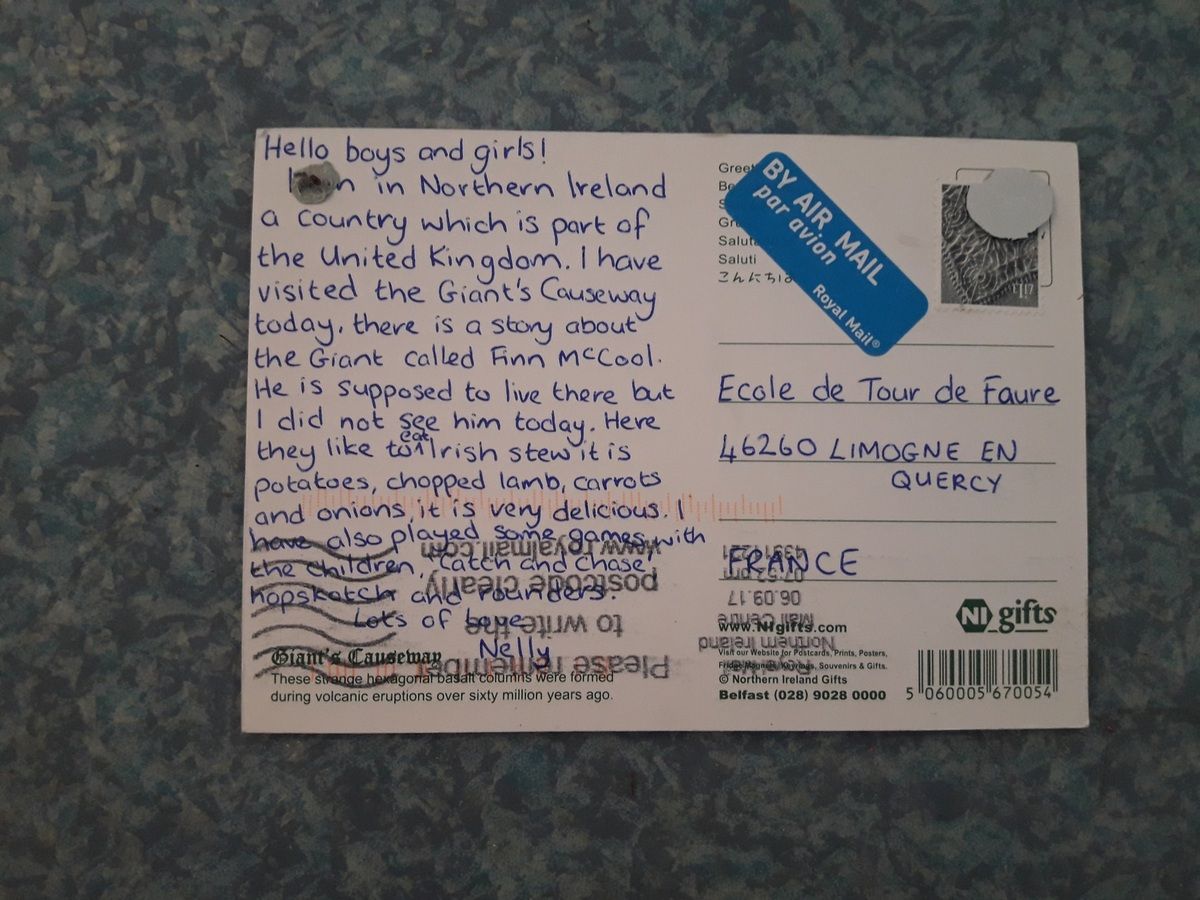 Hello boys and girls!
in Northern Ireland
a country which is part of
the United Kingdom. I have
visited the Giant's Causeway
today, there is a story about
the Giant called Finn McCool.
He is supposed to live there but
I did not see him today. Here
they like to eat Irish stew it is
potatoes, chopped lamb, carrots
and onions, it is very delicious. I
have also played some games with
the children, catch and chase,
hopskotch and rounders.
Lots of love
Nelly
Giant's Causeway
These strange hexagonal basalt columns were formed
during volcanic eruptions over sixty million years ago.
Please remember
to write the
postcode clearly
www.royalmail.com
Saluti
こんにちは
BY AIR MAIL
par avion
Royal Mail®
Ecole de Tour de Faure
46260 LIMOGNE EN
QUERCY
FRANCE
Northern Ireland
Mail Centre
06.09.17
07:52 pm
NI gifts
www.NIgifts.com
Visit our Website for Postcards, Prints, Posters,
Fridge Magnets, Keyrings, Souvenirs & Gifts.
© Northern Ireland Gifts
Belfast (028) 9028 0000
5 060005 670054